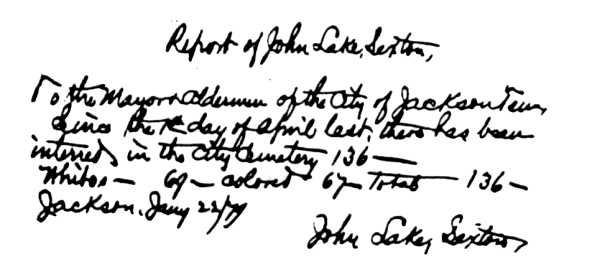 Report of John Lake, Sexton,
To the Mayor & Aldermen of the City of Jackson Tenn,
Since the 1st day of April last, there has been
interred, in the City Cemetery 136 —
Whites — 69 — colored 67 — Total — 136 —
Jackson, Jany 22/79
John Lake, Sexton,